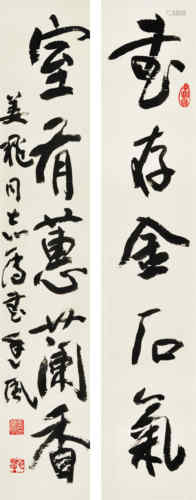 書存金石氣
室有蕙蘭香
姜飛同志屬書